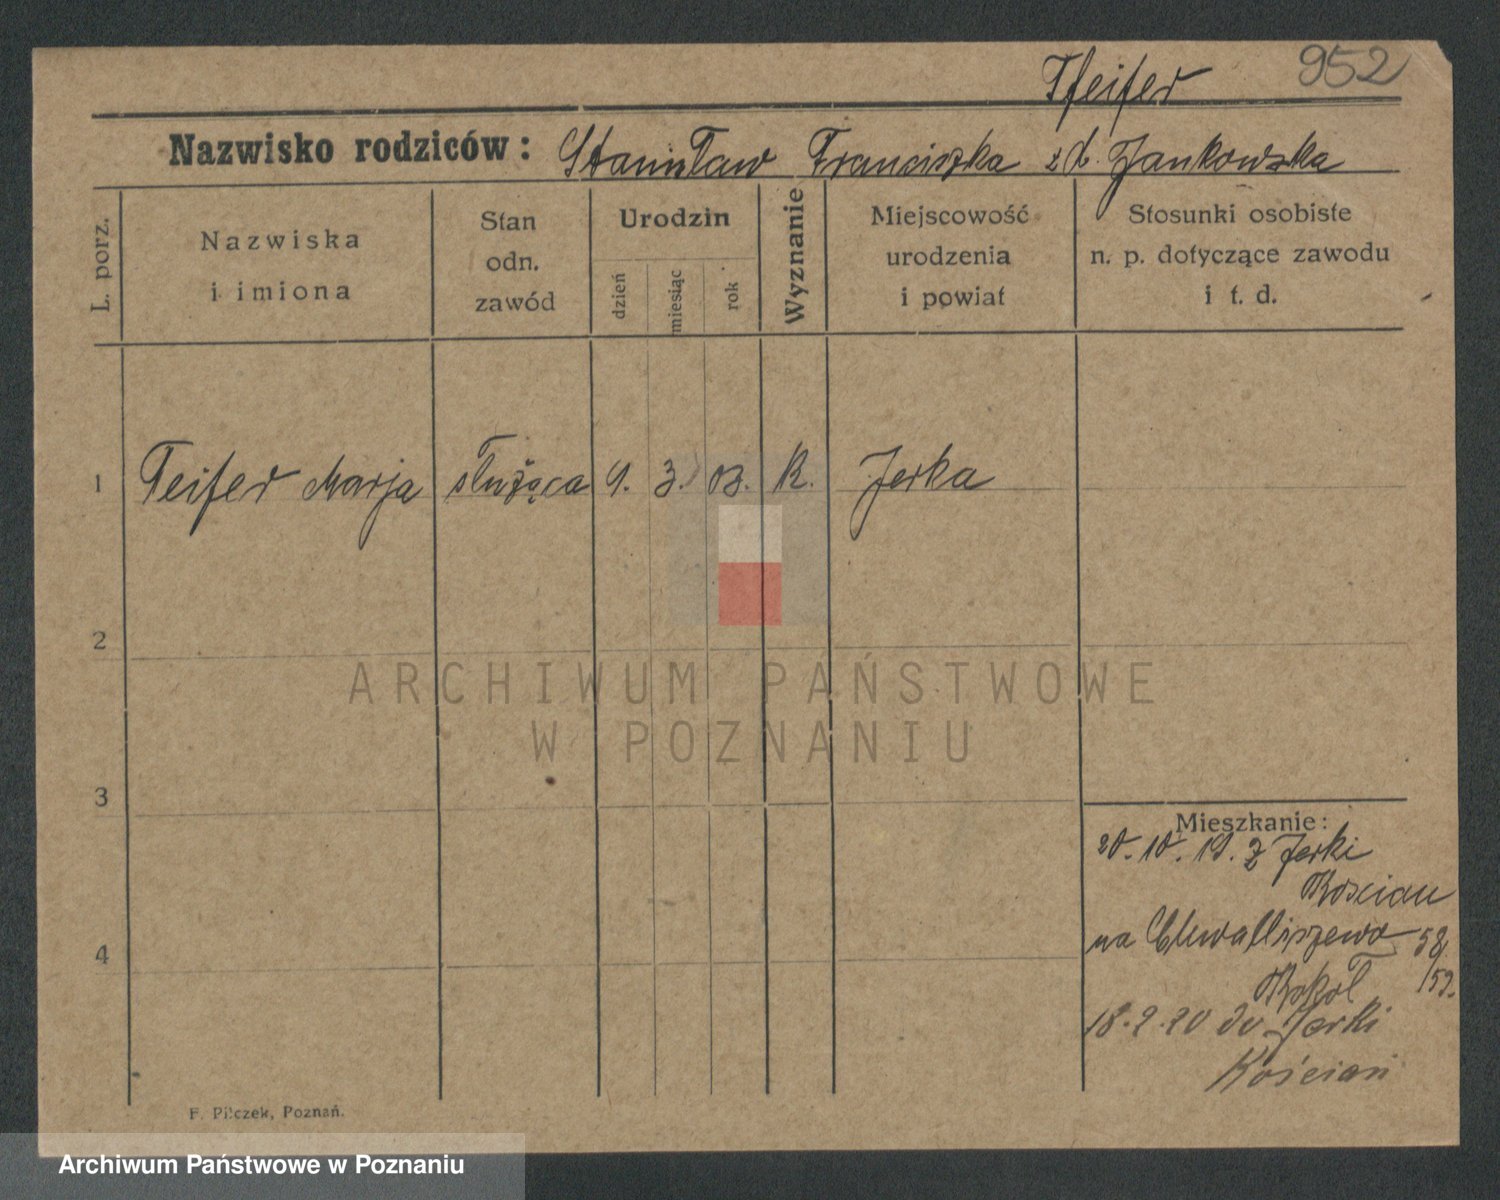 Pfeifer 952
Nazwisko rodziców: Stanisław Franciszka zd. Jankowska
L. porz.
Nazwiska
i imiona
Stan
odn.
zawód
Urodzin
dzień
miesiąc
rok
Wyznanie
Miejscowość
urodzenia
i powiat
Stosunki osobiste
n. p. dotyczące zawodu
i t. d.
1 Feifer Marja służąca 9. 3. 03. K. Jerka
2
ARCHIWUM PAŃSTWOWE
W POZNANIU
3
Mieszkanie:
20.10.19. z Jerki
Kościan
na Chwalliszewo 58/59.
18.2.20 do Jerki
Kościań
4
F. Pilczek, Poznań.
Archiwum Państwowe w Poznaniu